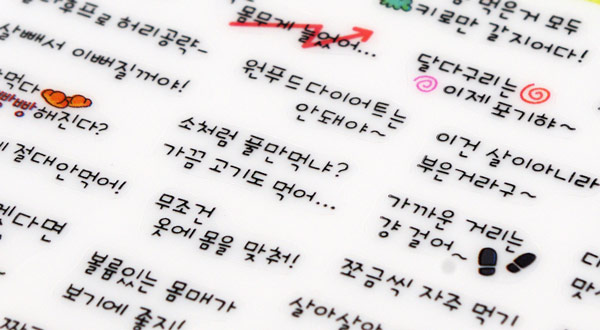 훌라후프로 허리공략~
살빼서 이뻐질거야!
몸무게 줄었어...
먹은거 모두
키로만 갈지어다!
달다구리는
이제 포기햐~
원푸드다이어트는
안돼야~
먹다
빵빵해진다?
소처럼 풀만먹냐?
가끔 고기도 먹어...
이건 살이아니라
부은거라구~
절대안먹어!
무조건
옷에 몸을 맞춰!
가까운 거리는
걍 걸어~
볼륨있는 몸매가
보기에 좋지!
쪼금씩 자주 먹기
살아살아